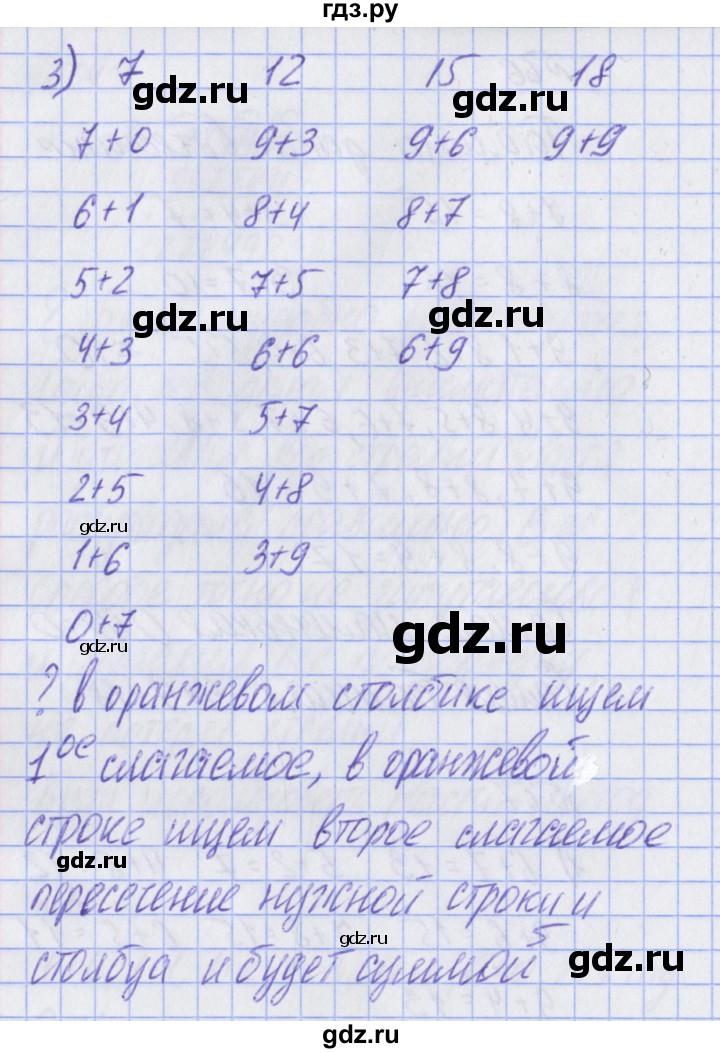 гдз.ру
3) 7 12 15 18
gdz.ru gdz.ru
7+0 9+3 9+6 9+9
6+1 8+4 8+7
5+2 7+5 7+8
gdz.ru gdz.ru
4+3 6+6 6+9
3+4 5+7
2+5 4+8
gdz.ru
1+6 3+9
0+7 gdz.ru
gdz.ru
? в оранжевом столбике ищем
1ое слагаемое, в оранжевой
строке ищем второе слагаемое
gdz.ru
пересечение нужной строки и
gdz.ru 5
столбца и будет суммой gdz.ru
gdz.ru